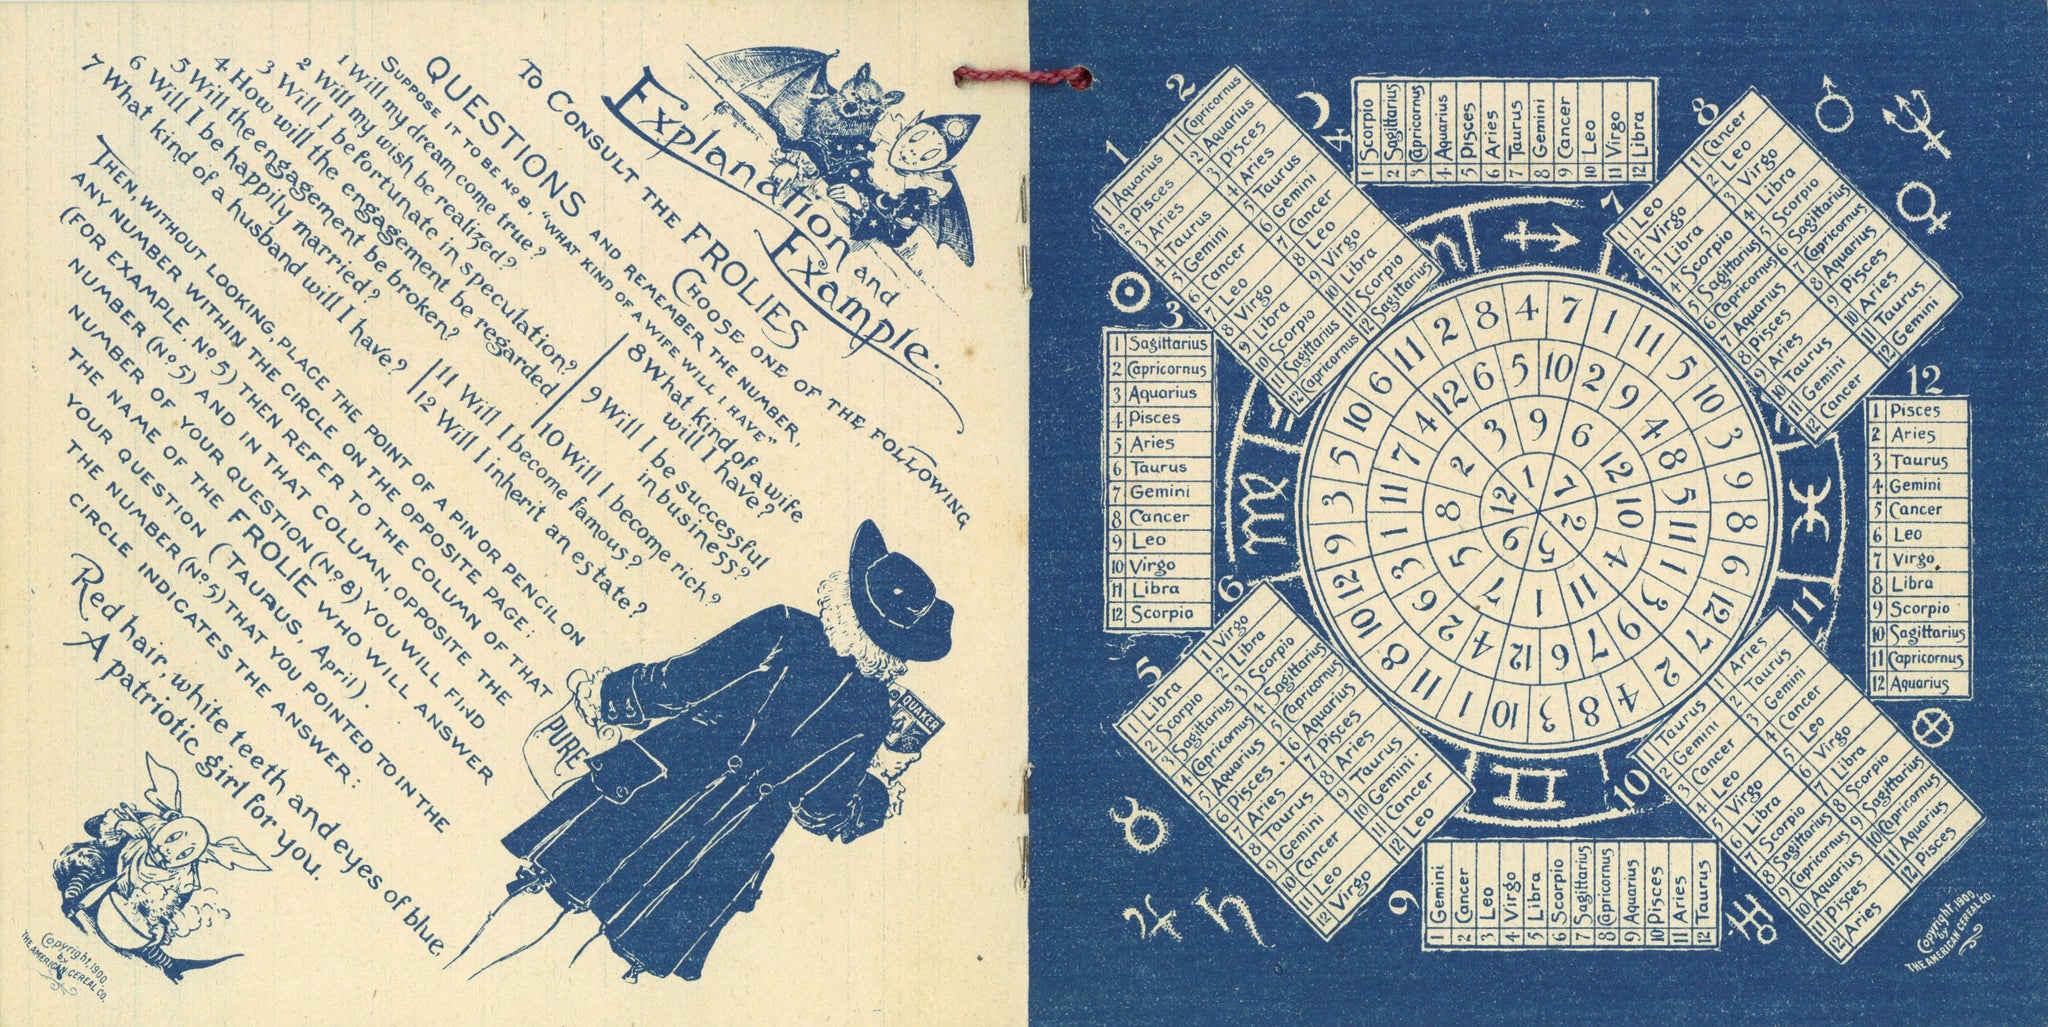 Explanation and
Example.
To Consult the FROLIES
Choose one of the following
QUESTIONS and remember the number,
Suppose it to be No. 8, "What kind of a wife will I have"
1 Will my dream come true?
2 Will my wish be realized?
3 Will I be fortunate in speculation?
4 How will the engagement be regarded
5 Will the engagement be broken?
6 Will I be happily married?
7 What kind of a husband will I have?
8 What kind of a wife
will I have?
9 Will I be successful
in business?
10 Will I become rich?
11 Will I become famous?
12 Will I inherit an estate?
Then, without looking, place the point of a pin or pencil on
any number within the circle on the opposite page;
(for example. No. 5) then refer to the column of that
number (No. 5) and in that column, opposite the
number of your question (No. 8) you will find
the name of the FROLIE who will answer
your question (Taurus, April).
The number (No. 5) that you pointed to in the
circle indicates the answer:
Red hair, white teeth and eyes of blue,
A patriotic girl for you.
PURE
QUAKER
Copyright, 1900,
by
THE AMERICAN CEREAL CO.
1
1 Aquarius
2 Pisces
3 Aries
4 Taurus
5 Gemini
6 Cancer
7 Leo
8 Virgo
9 Libra
10 Scorpio
11 Sagittarius
12 Capricornus
2
1 Capricornus
2 Aquarius
3 Pisces
4 Aries
5 Taurus
6 Gemini
7 Cancer
8 Leo
9 Virgo
10 Libra
11 Scorpio
12 Sagittarius
3
1 Sagittarius
2 Capricornus
3 Aquarius
4 Pisces
5 Aries
6 Taurus
7 Gemini
8 Cancer
9 Leo
10 Virgo
11 Libra
12 Scorpio
4
1 Scorpio
2 Sagittarius
3 Capricornus
4 Aquarius
5 Pisces
6 Aries
7 Taurus
8 Gemini
9 Cancer
10 Leo
11 Virgo
12 Libra
5
1 Libra
2 Scorpio
3 Sagittarius
4 Capricornus
5 Aquarius
6 Pisces
7 Aries
8 Taurus
9 Gemini
10 Cancer
11 Leo
12 Virgo
6
1 Virgo
2 Libra
3 Scorpio
4 Sagittarius
5 Capricornus
6 Aquarius
7 Pisces
8 Aries
9 Taurus
10 Gemini.
11 Cancer
12 Leo
7
1 Leo
2 Virgo
3 Libra
4 Scorpio
5 Sagittarius
6 Capricornus
7 Aquarius
8 Pisces
9 Aries
10 Taurus
11 Gemini
12 Cancer
8
1 Cancer
2 Leo
3 Virgo
4 Libra
5 Scorpio
6 Sagittarius
7 Capricornus
8 Aquarius
9 Pisces
10 Aries
11 Taurus
12 Gemini
9
1 Gemini
2 Cancer
3 Leo
4 Virgo
5 Libra
6 Scorpio
7 Sagittarius
8 Capricornus
9 Aquarius
10 Pisces
11 Aries
12 Taurus
10
1 Taurus
2 Gemini
3 Cancer
4 Leo
5 Virgo
6 Libra
7 Scorpio
8 Sagittarius
9 Capricornus
10 Aquarius
11 Pisces
12 Aries
11
1 Aries
2 Taurus
3 Gemini
4 Cancer
5 Leo
6 Virgo
7 Libra
8 Scorpio
9 Sagittarius
10 Capricornus
11 Aquarius
12 Pisces
12
1 Pisces
2 Aries
3 Taurus
4 Gemini
5 Cancer
6 Leo
7 Virgo
8 Libra
9 Scorpio
10 Sagittarius
11 Capricornus
12 Aquarius
4 7 1 11 5 10 3 9 8 6 12 7 2 4 8 3 10 1 11 8 10 12 9 3 5 10 6 11 2 8
5 10 2 9 4 8 5 11 3 9 7 6 12 4 2 6 3 1 11 7 4 12 6
9 6 12 10 4 11 1 7 5 8 2 3
1 7 2 5 9 12
Copyright, 1900,
by
THE AMERICAN CEREAL CO.